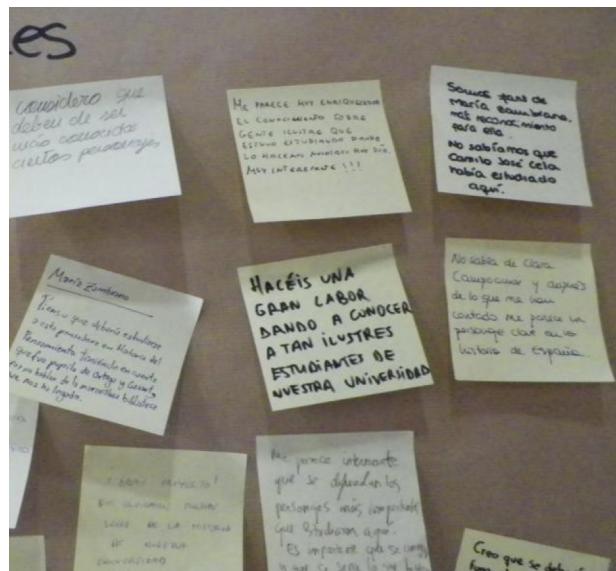 es
considero que
deben de ser
más conocidos
ciertos personajes
ME PARECE MUY ENRIQUECEDOR
EL CONOCIMIENTO SOBRE
GENTE ILUSTRE QUE
ESTUVO ESTUDIANDO DONDE
LO HACEMOS NOSOTROS HOY DÍA.
MUY INTERESANTE!!!
Somos fans de
María Zambrano,
más reconocimiento
para ella.
No sabíamos que
Camilo José Cela
había estudiado
aquí.
María Zambrano
que debería estudiarse
a esta pensadora en Historia del
Pensamiento teniendo en cuenta
que fue pupila de Ortega y Gasset,
no hablar de la maravillosa biblioteca
que nos ha legado.
HACÉIS UNA
GRAN LABOR
DANDO A CONOCER
A TAN ILUSTRES
ESTUDIANTES DE
NUESTRA UNIVERSIDAD
No sabía de Clara
Campoamor y después
de lo que me han
contado me parece un
personaje clave en la
historia de España.
¡GRAN PROYECTO!
DE LA HISTORIA
DE NUESTRA
UNIVERSIDAD
Me parece interesante
que se difundan los
personajes más importantes
que estudiaron aquí.
Es importante que se conozca
y que se sepa lo que
Creo que se